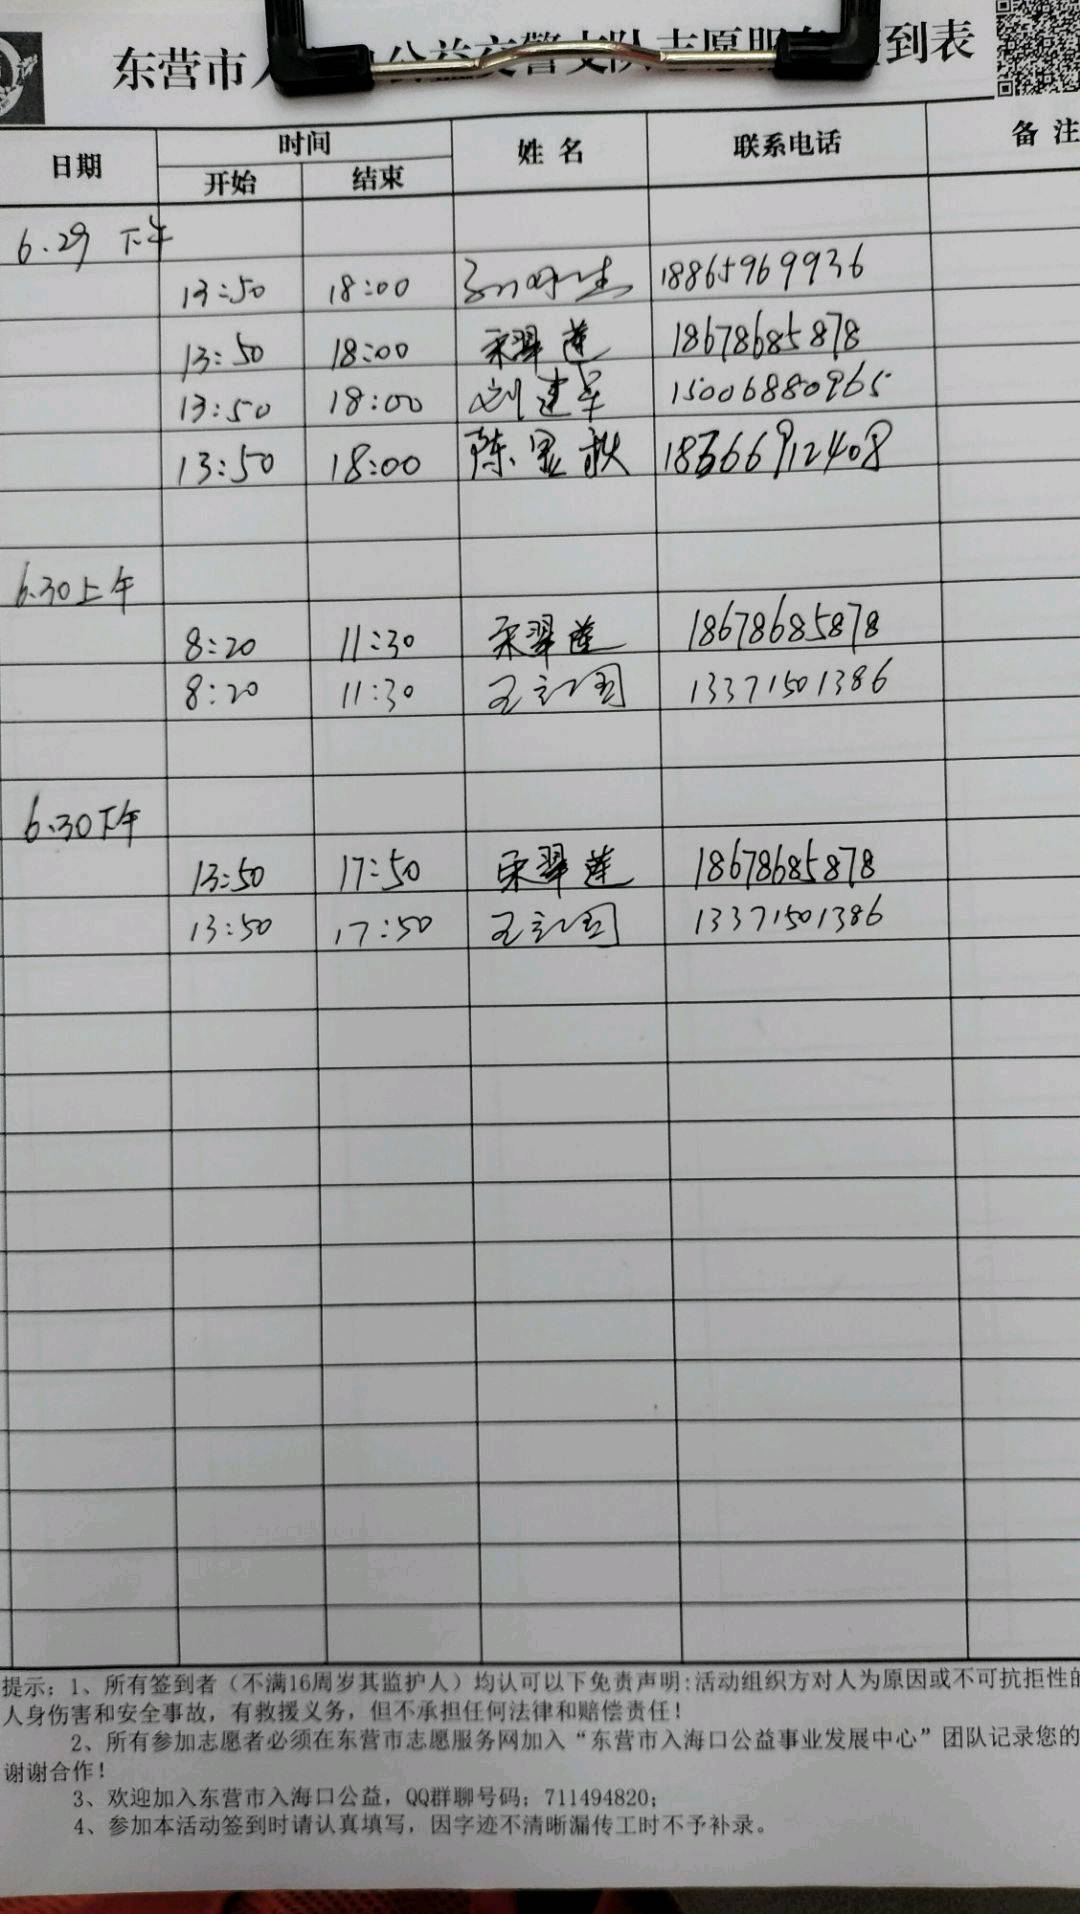 东营市入 口公益交警支队志愿服务签到表
日期 时间 姓名 联系电话 备注
开始 结束
6.29 下午
13:50 18:00 18865969936
13:50 18:00 宋翠莲 18678685878
13:50 18:00 刘建军 15006880965
13:50 18:00 陈 秋 18366912408
6.30上午
8:20 11:30 宋翠莲 18678685878
8:20 11:30 王 13371501386
6.30下午
13:50 17:50 宋翠莲 18678685878
13:50 17:50 王 13371501386
提示：1、所有签到者（不满16周岁其监护人）均认可以下免责声明:活动组织方对人为原因或不可抗拒性的
人身伤害和安全事故，有救援义务，但不承担任何法律和赔偿责任！
2、所有参加志愿者必须在东营市志愿服务网加入“东营市入海口公益事业发展中心”团队记录您的
谢谢合作！
3、欢迎加入东营市入海口公益，QQ群聊号码：711494820；
4、参加本活动签到时请认真填写，因字迹不清晰漏传工时不予补录。